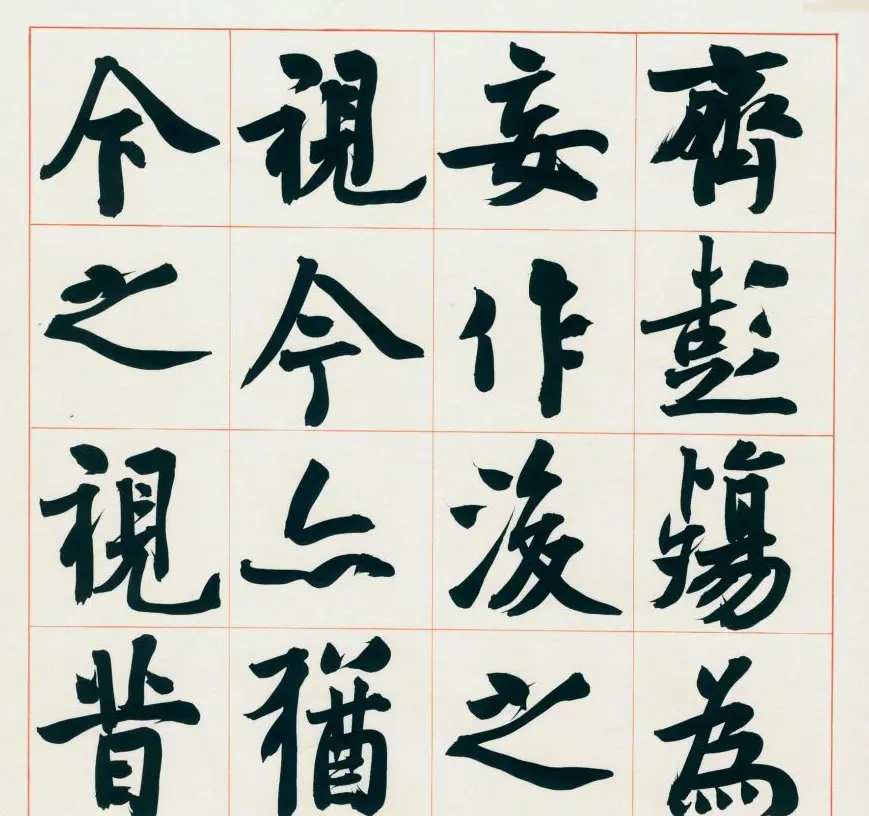 齊彭殤為
妄作後之
視今亦猶
今之視昔